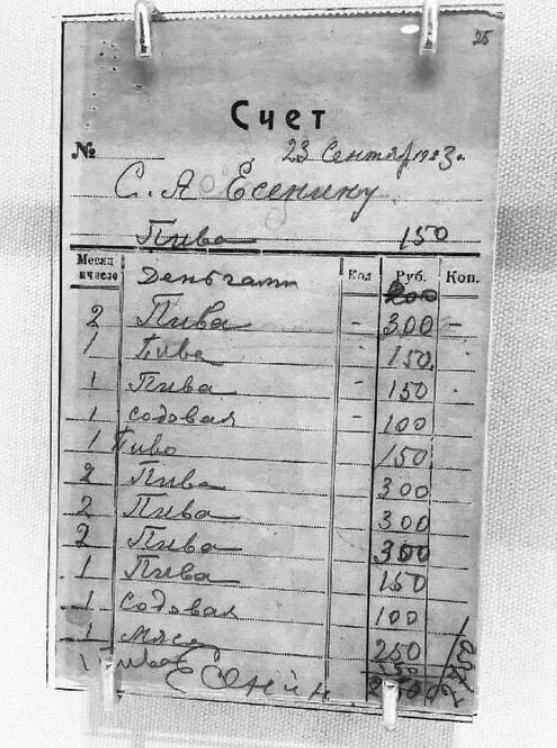 25
Счет
№ 23 Сентяр 1923г.
С. А Есенину
Пива 150
Месяц и число Кол Руб. Коп.
Деньгами 200
2 Пива - 300 -
1 Пива 150
1 Пива - 150
1 содовая - 100
1 Пиво 150
2 Пива 300
2 Пива 300
2 Пива 300
1 Пива 150
1 Содовая 100
1 Мясо 250
1 150
Есенин